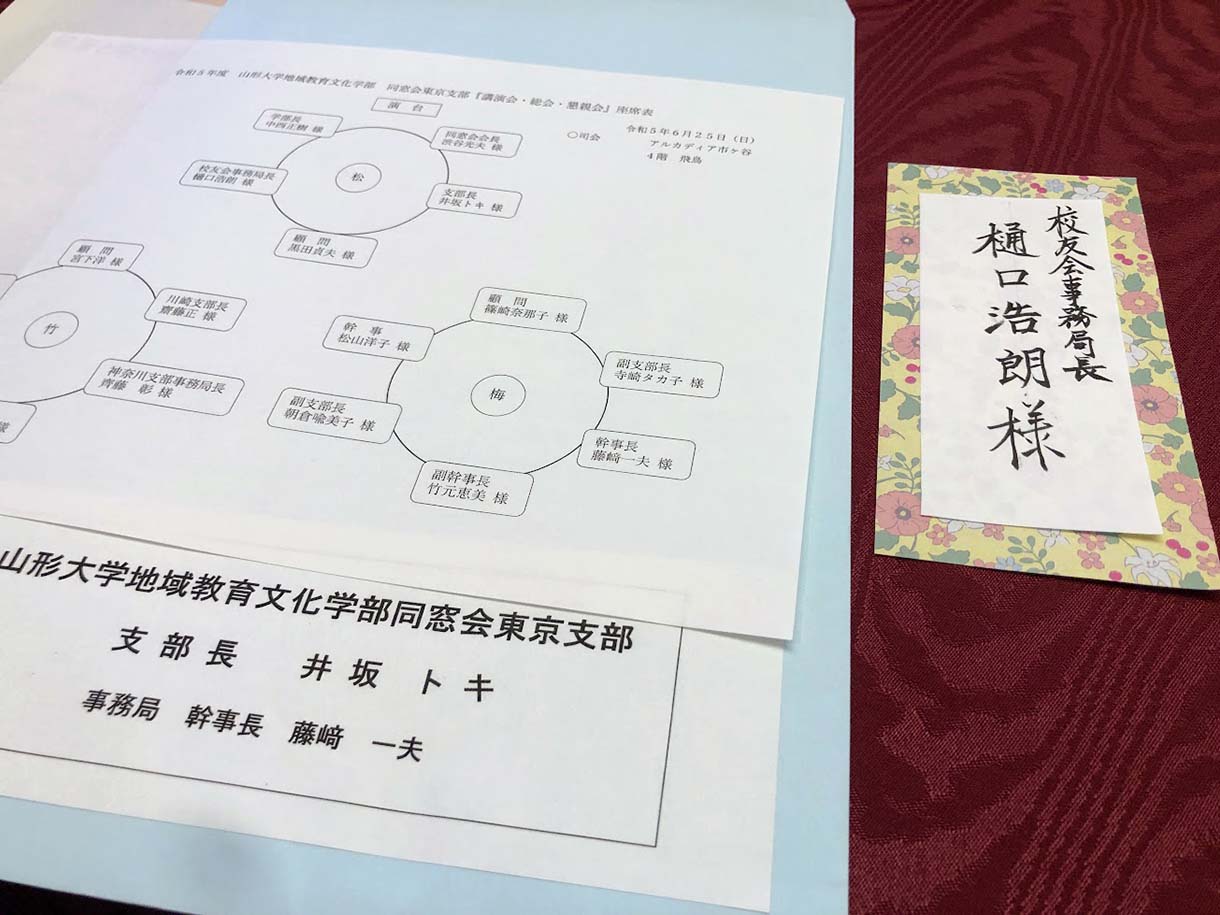 令和5年度　山形大学地域教育文化学部　同窓会東京支部『講演会・総会・懇親会』座席表
演　台
○司会
令和5年6月25日（日）
アルカディア市ヶ谷
4階　飛鳥
学部長
中西正樹 様
同窓会会長
渋谷光夫 様
校友会事務局長
樋口浩朗 様
松
支部長
井坂トキ 様
顧　問
黒田貞夫 様
顧　問
宮下洋 様
川崎支部長
齋藤正 様
竹
神奈川支部事務局長
齊藤　彰 様
様
顧　問
篠崎奈那子 様
幹　事
松山洋子 様
副支部長
寺崎タカ子 様
梅
副支部長
朝倉喩美子 様
幹事長
藤﨑一夫 様
副幹事長
竹元恵美 様
山形大学地域教育文化学部同窓会東京支部
支部長　井坂　トキ
事務局　幹事長　藤﨑　一夫
校友会事務局長
樋口浩朗様